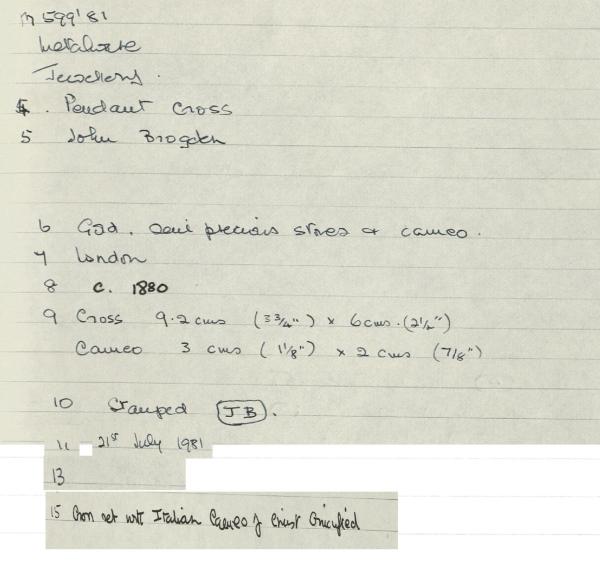 M 599'81
Metalwork
Jewellery.
4. Pendant Cross
5 John Brogden
6 Gold, semi precious stones & cameo.
7 London
8 c. 1880
9 Cross 9.2 cms (3 3/4") x 6 cms. (2 1/2")
Cameo 3 cms (1 1/8") x 2 cms (7/8")
10 Stamped JB.
11 21st July 1981
13
15 Cross set with Italian Cameo of Christ Crucified